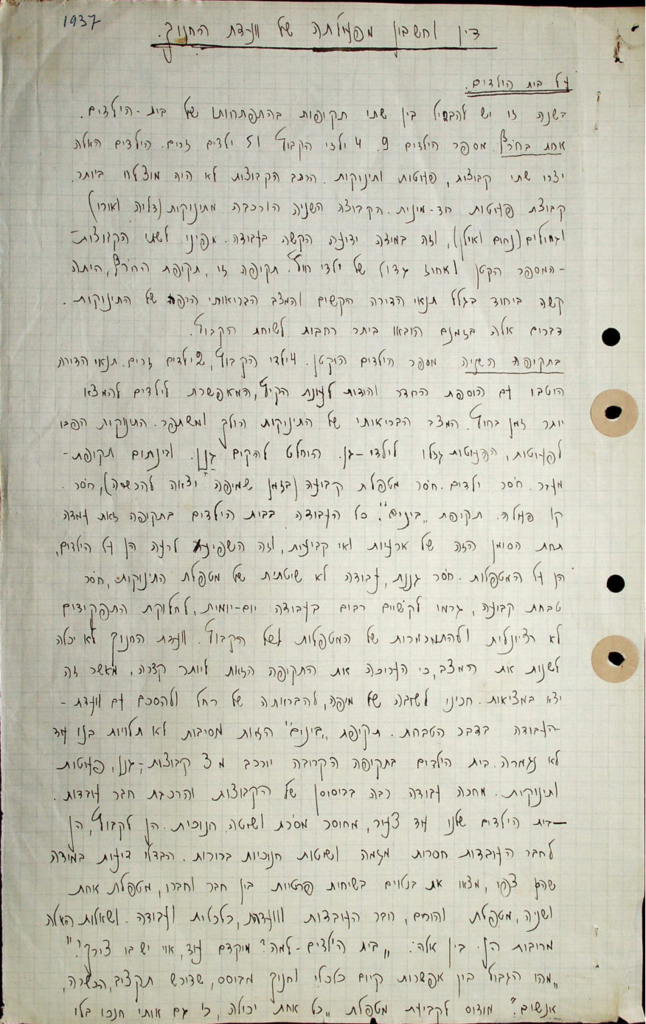 1937
דין וחשבון מפעולתה של וועדת החנוך.
על בית הילדים.
בשנה זו יש להבדיל בין שתי תקופות בהתפתחותו של בית-הילדים.
אחת בחרף מספר הילדים 9. 4 ילדי הקבוץ ו5 ילדים זרים. הילדים האלה
יצרו שתי קבוצות, פעוטות ותינוקות. הרכב הקבוצות לא היה מוצלח ביותר.
קבוצת פעוטות חד-מינית. הקבוצה השניה הורכבה מתינוקות (דליה ואורי)
וגמולים (נחום ואילן), וזה במידה ידועה הקשה בעבודה. מפינוי לשתי הקבוצות-
-המספר הקטן ואחוז גדול של ילדי חוץ. תקופה זו, תקופת החרף, היתה
קשה ביחוד בגלל תנאי הדירה הקשים והמצב הבריאותי הרפה של התינוקות.
דברים אלה בזמנם הובאו ביתר רחבות לשיחת הקבוץ.
בתקופה השניה מספר הילדים הוקטן. 4 ילדי הקבוץ, 2 ילדים זרים. תנאי הדירה
הוטבו עם הוספת החדר והודות לעונת הקיץ, המאפשרת לילדים להמצא
יותר זמן בחוץ. המצב הבריאותי של התינוקות הולך ומשתפר. התינוקות הפכו
לפעוטות, הפעוטות גדלו לילדי-גן. הוחלט להקים גנון. ובינתים תקופת-
מעבר. חוסר ילדים. חוסר מטפלת קבועה (בזמן שמיפה יצאה להכשרה), חוסר
קו פעולה. תקופת "בינים". כל העבודה בבית הילדים בתקופה זאת עמדה
תחת הסימן הזה של ארעיות ואי קביעות, וזה השפיע לרעה הן על הילדים,
הן על המטפלות. חוסר גננת, עבודה לא שיטתית של מטפלת התינוקות, חוסר
טבחת קבועה, גרמו לקשיים רבים בעבודה יום-יומית, לחלוקת התפקידים
לא רציונלית ולהתמרמרות של המטפלות ושל הקבוץ. וועדת החנוך לא יכלה
לשנות את המצב, כי העריכה את התקופה הזאת ליותר קצרה, מאשר זה
יצא במציאות. חכינו לשובה של מיפה, להבראתה של רחל ולהסכם עם וועדת-
-העבודה בדבר הטבחת. תקופת "בינים" הזאת מסיבות לא תלויות בנו עוד
לא נגמרה. בית הילדים בתקופה הקרובה יורכב מ 3 קבוצות,-גנון, פעוטות
ותינוקות. מחכה עבודה רבה בביסוסן של הקבוצות והרכבת חבר עובדות.
-בית הילדים שלנו עוד צעיר, מחוסר מסורת ושיטה. חנוכית. הן לקבוץ, הן
לחבר העובדות חסרות מגמה ושיטות חנוכיות ברורות. הבדלי דיעות במידה
שהן צפו, מצאו את בטוים בשיחות פרטיות בין חבר וחברו, מטפלת אחת
ושניה, מטפלת והורים, חבר העובדות ווועדות, כלכלית ועבודה. ושאלות האלה
מרובות הן. בין אלה: "בית הילדים-למה? מוקדם עוד, אוי יש בו צורך?"
"מהו הגבול בין אפשרות קיום כלכלי וחנוך מבוסס, שדורש תקציב, הכשרה,
אנשים?" מודוס לקביעת מטפלת "כל אחת יכולה, כי גם אותי חנכו בלי